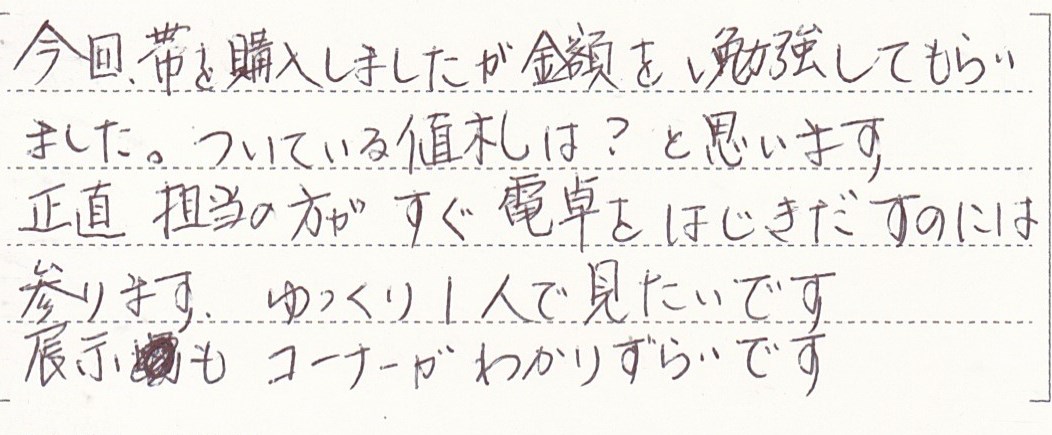 今回、帯を購入しましたが金額を、勉強してもらい
ました。ついている値札は？と思います
正直 担当の方が すぐ 電卓を はじきだ すのには
参ります. ゆっくり1人で見たいです
展示も コーナーが わかりずらいです